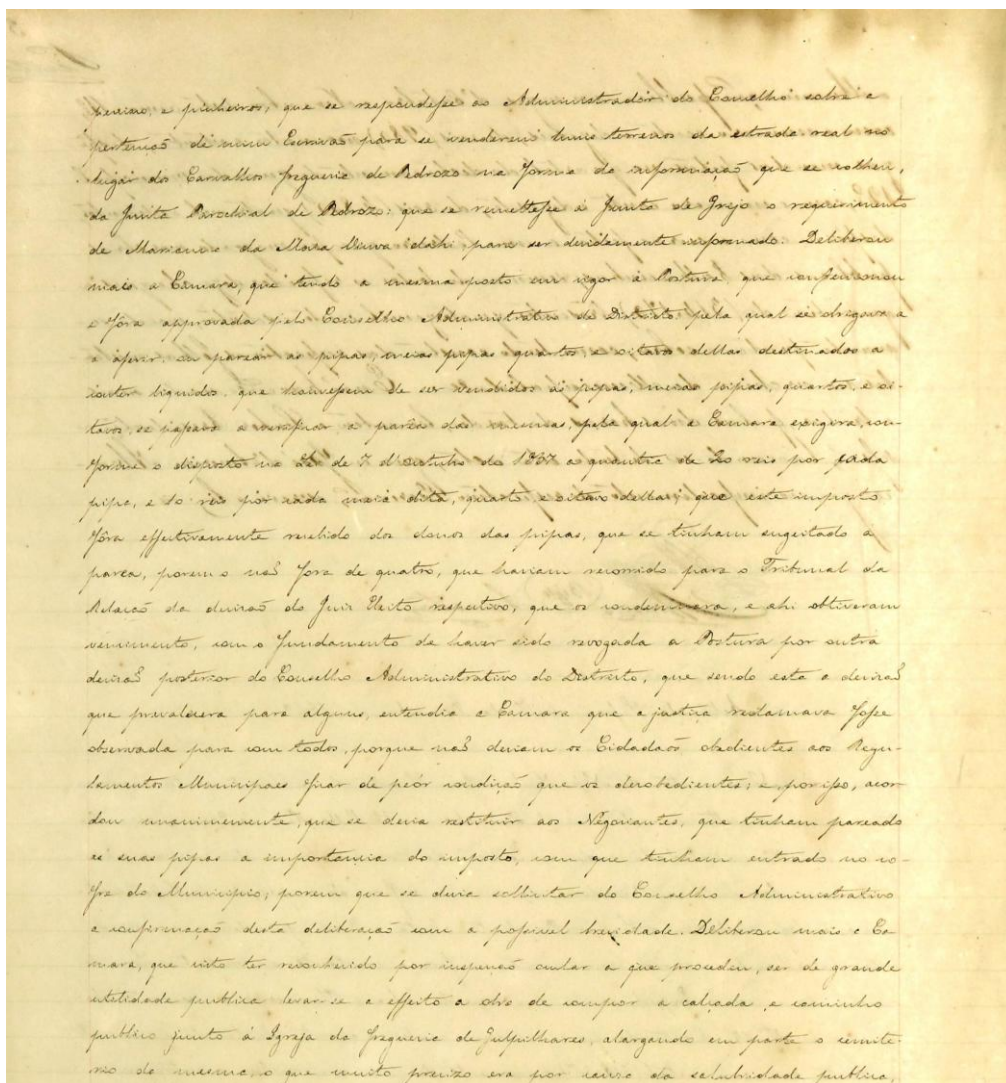 e pinheiros, que se respondesse ao Administrador do Concelho sobre a
pertenção de um Escrivão para se venderem huns terrenos da estrada real no
lugar dos Carvalhos freguezia de Pedrozo na forma da informação que se colheu,
da Junta Parochial de Pedrozo; que se remettesse á Junta de Grijo o requerimento
de Marianna da Mota Viuva dahi para ser devidamente informado. Deliberou
mais a Camara, que tendo a mesma posto em vigor a Postura, que confeccionou
e fôra approvada pelo Conselho Administrativo do Districto pela qual se obrigava a
a aferir, ou parear as pipas, meias pipas quartos, e oitavos dellas destinados a
conter liquidos, que houvessem de ser vendidos ás pipas, meias pipas, quartos, e oi-
tavos, se passava a verificar a paréa das mesmas, pela qual a Camara exigira, con-
forme o disposto na Lei de 7 d'outubro de 1837 a quantia de 20 reis por cada
pipa, e 10 reis por cada meia dita, quarto e oitavo della; que este imposto
fôra effectivamente recebido dos donos das pipas, que se tinham sugeitado a
parea, porem o naõ fora de quatro, que haviam recorrido para o Tribunal da
Relacaõ da decisaõ do Juiz Eleito respectivo, que os condemnara, e ahi obtiveram
vencimento, com o fundamento de haver sido revogada a Postura por outra
decisaõ posterior do Conselho Administrativo do Districto, que sendo esta a decisaõ
que prevalecera para alguns, entendia a Camara que a justiça reclamava fosse
observada para com todos, porque naõ deviam os Cidadaõs obedientes aos Regu-
lamentos Municipaes ficar de peór condição que os desobedientes; e, por isso, acor-
dou unanimemente, que se devia restituir aos Negociantes, que tinham pareado
as suas pipas a importancia do imposto, com que tinham entrado no co-
fre do Municipio; porem que se devia sollicitar do Conselho Administrativo
a confirmação desta deliberação com a possivel brevidade. Deliberou mais a Ca-
mara, que visto ter reconhecido por inspecaõ ocular a que procedeu, ser de grande
utelidade publica levar-se a effeito a obra de compor a calçada, e caminho
publico junto á Igreja da freguezia de Gulpilhares, alargando em parte o cemite-
rio da mesma, o que muito precizo era por causa da salubridade publica,